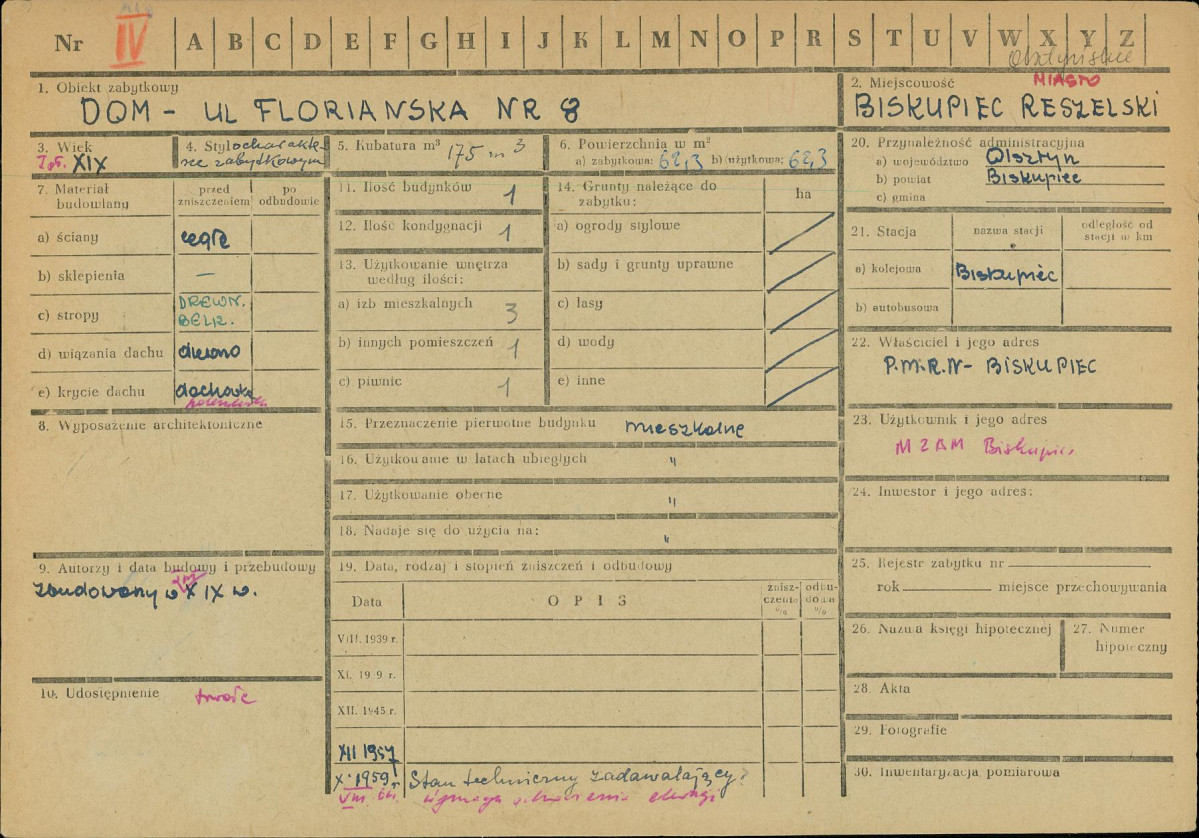 Nr IV A B C D E F G H I J K L M N O P R S T U V W X Y Z
1. Obiekt zabytkowy
DOM - UL FLORIAŃSKA NR 8
2. Miejscowość MIASTO
BISKUPIEC RESZELSKI
3. Wiek
XIX
4. Styl o charakte
rze zabytkowym
5. Kubatura m³ 175 m³
6. Powierzchnia w m²
a) zabytkowa: 62,3 b) użytkowa: 62,3
20. Przynależność administracyjna
a) województwo Olsztyn
b) powiat Biskupiec
c) gmina
7. Materiał budowlany
przed zniszczeniem
po odbudowie
a) ściany cegła
b) sklepienia —
c) stropy DREWN. BELK.
d) wiązania dachu drewno
e) krycie dachu dachówka
11. Ilość budynków 1
12. Ilość kondygnacji 1
13. Użytkowanie wnętrza według ilości:
a) izb mieszkalnych 3
b) innych pomieszczeń 1
c) piwnic 1
14. Grunty należące do zabytku:
ha
a) ogrody stylowe
b) sady i grunty uprawne
c) lasy
d) wody
e) inne
21. Stacja
nazwa stacji
odległość od stacji w km
a) kolejowa Biskupiec
b) autobusowa
22. Właściciel i jego adres
P.M.R.N - BISKUPIEC
8. Wyposażenie architektoniczne
15. Przeznaczenie pierwotne budynku mieszkalne
16. Użytkowanie w latach ubiegłych "
17. Użytkowanie obecne "
18. Nadaje się do użycia na: "
23. Użytkownik i jego adres
MZBM Biskupiec
24. Inwestor i jego adres:
9. Autorzy i data budowy i przebudowy
zbudowany w XIX w.
10. Udostępnienie
19. Data, rodzaj i stopień zniszczeń i odbudowy
Data
OPIS
zniszczenia %
odbudowa %
VIII. 1939 r.
XI. 19 9 r.
XII. 1945 r.
XII 1957
X. 1959 r. Stan techniczny zadawalający.
VIII
25. Rejestr zabytku nr
rok miejsce przechowywania
26. Nazwa księgi hipotecznej
27. Numer hipoteczny
28. Akta
29. Fotografie
30. Inwentaryzacja pomiarowa